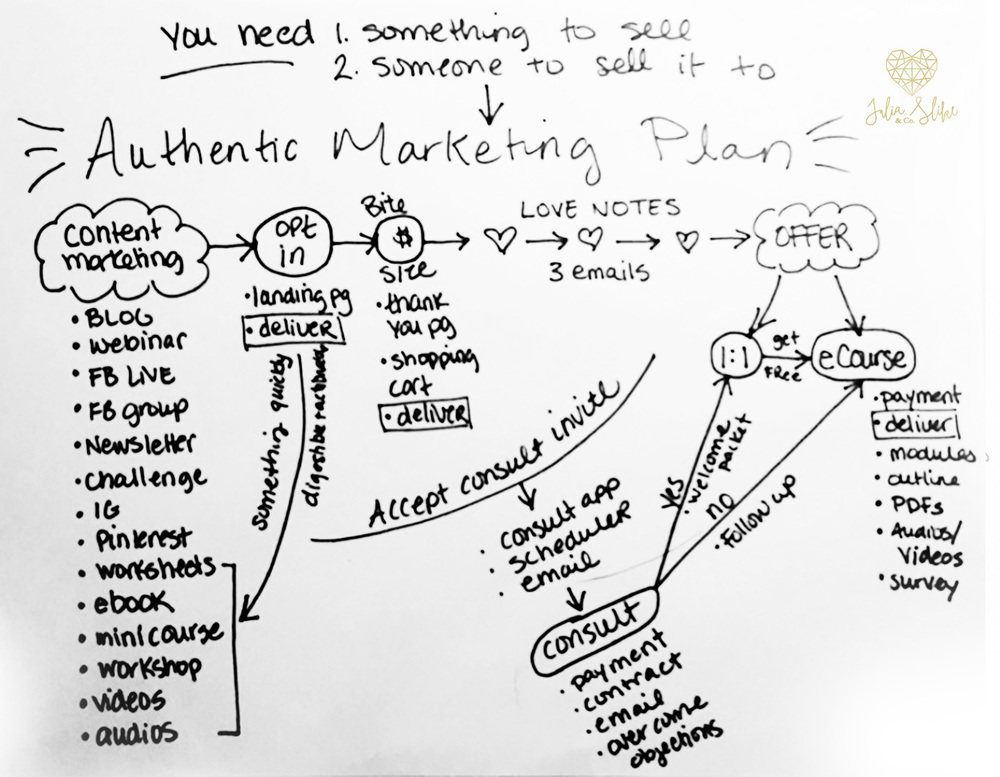 You need 1. something to sell
2. someone to sell it to
Julia Slike
& Co.
Authentic Marketing Plan
content
marketing
• BLOG
• webinar
• FB LIVE
• FB group
• Newsletter
• challenge
• IG
• Pinterest
• worksheets
• ebook
• mini course
• workshop
• videos
• audios
opt
in
• landing pg
• deliver
something quickly
digestible
Bite
$
size
• thank
you pg
• shopping
cart
• deliver
LOVE NOTES
3 emails
OFFER
1:1
get
FRee
eCourse
• payment
• deliver
• modules
• outline
• PDFs
• Audios/
Videos
• survey
Accept consult invite
• consult app
• scheduler
• email
consult
• payment
• contract
• email
• overcome
objections
yes
• welcome
packet
no
• Follow up